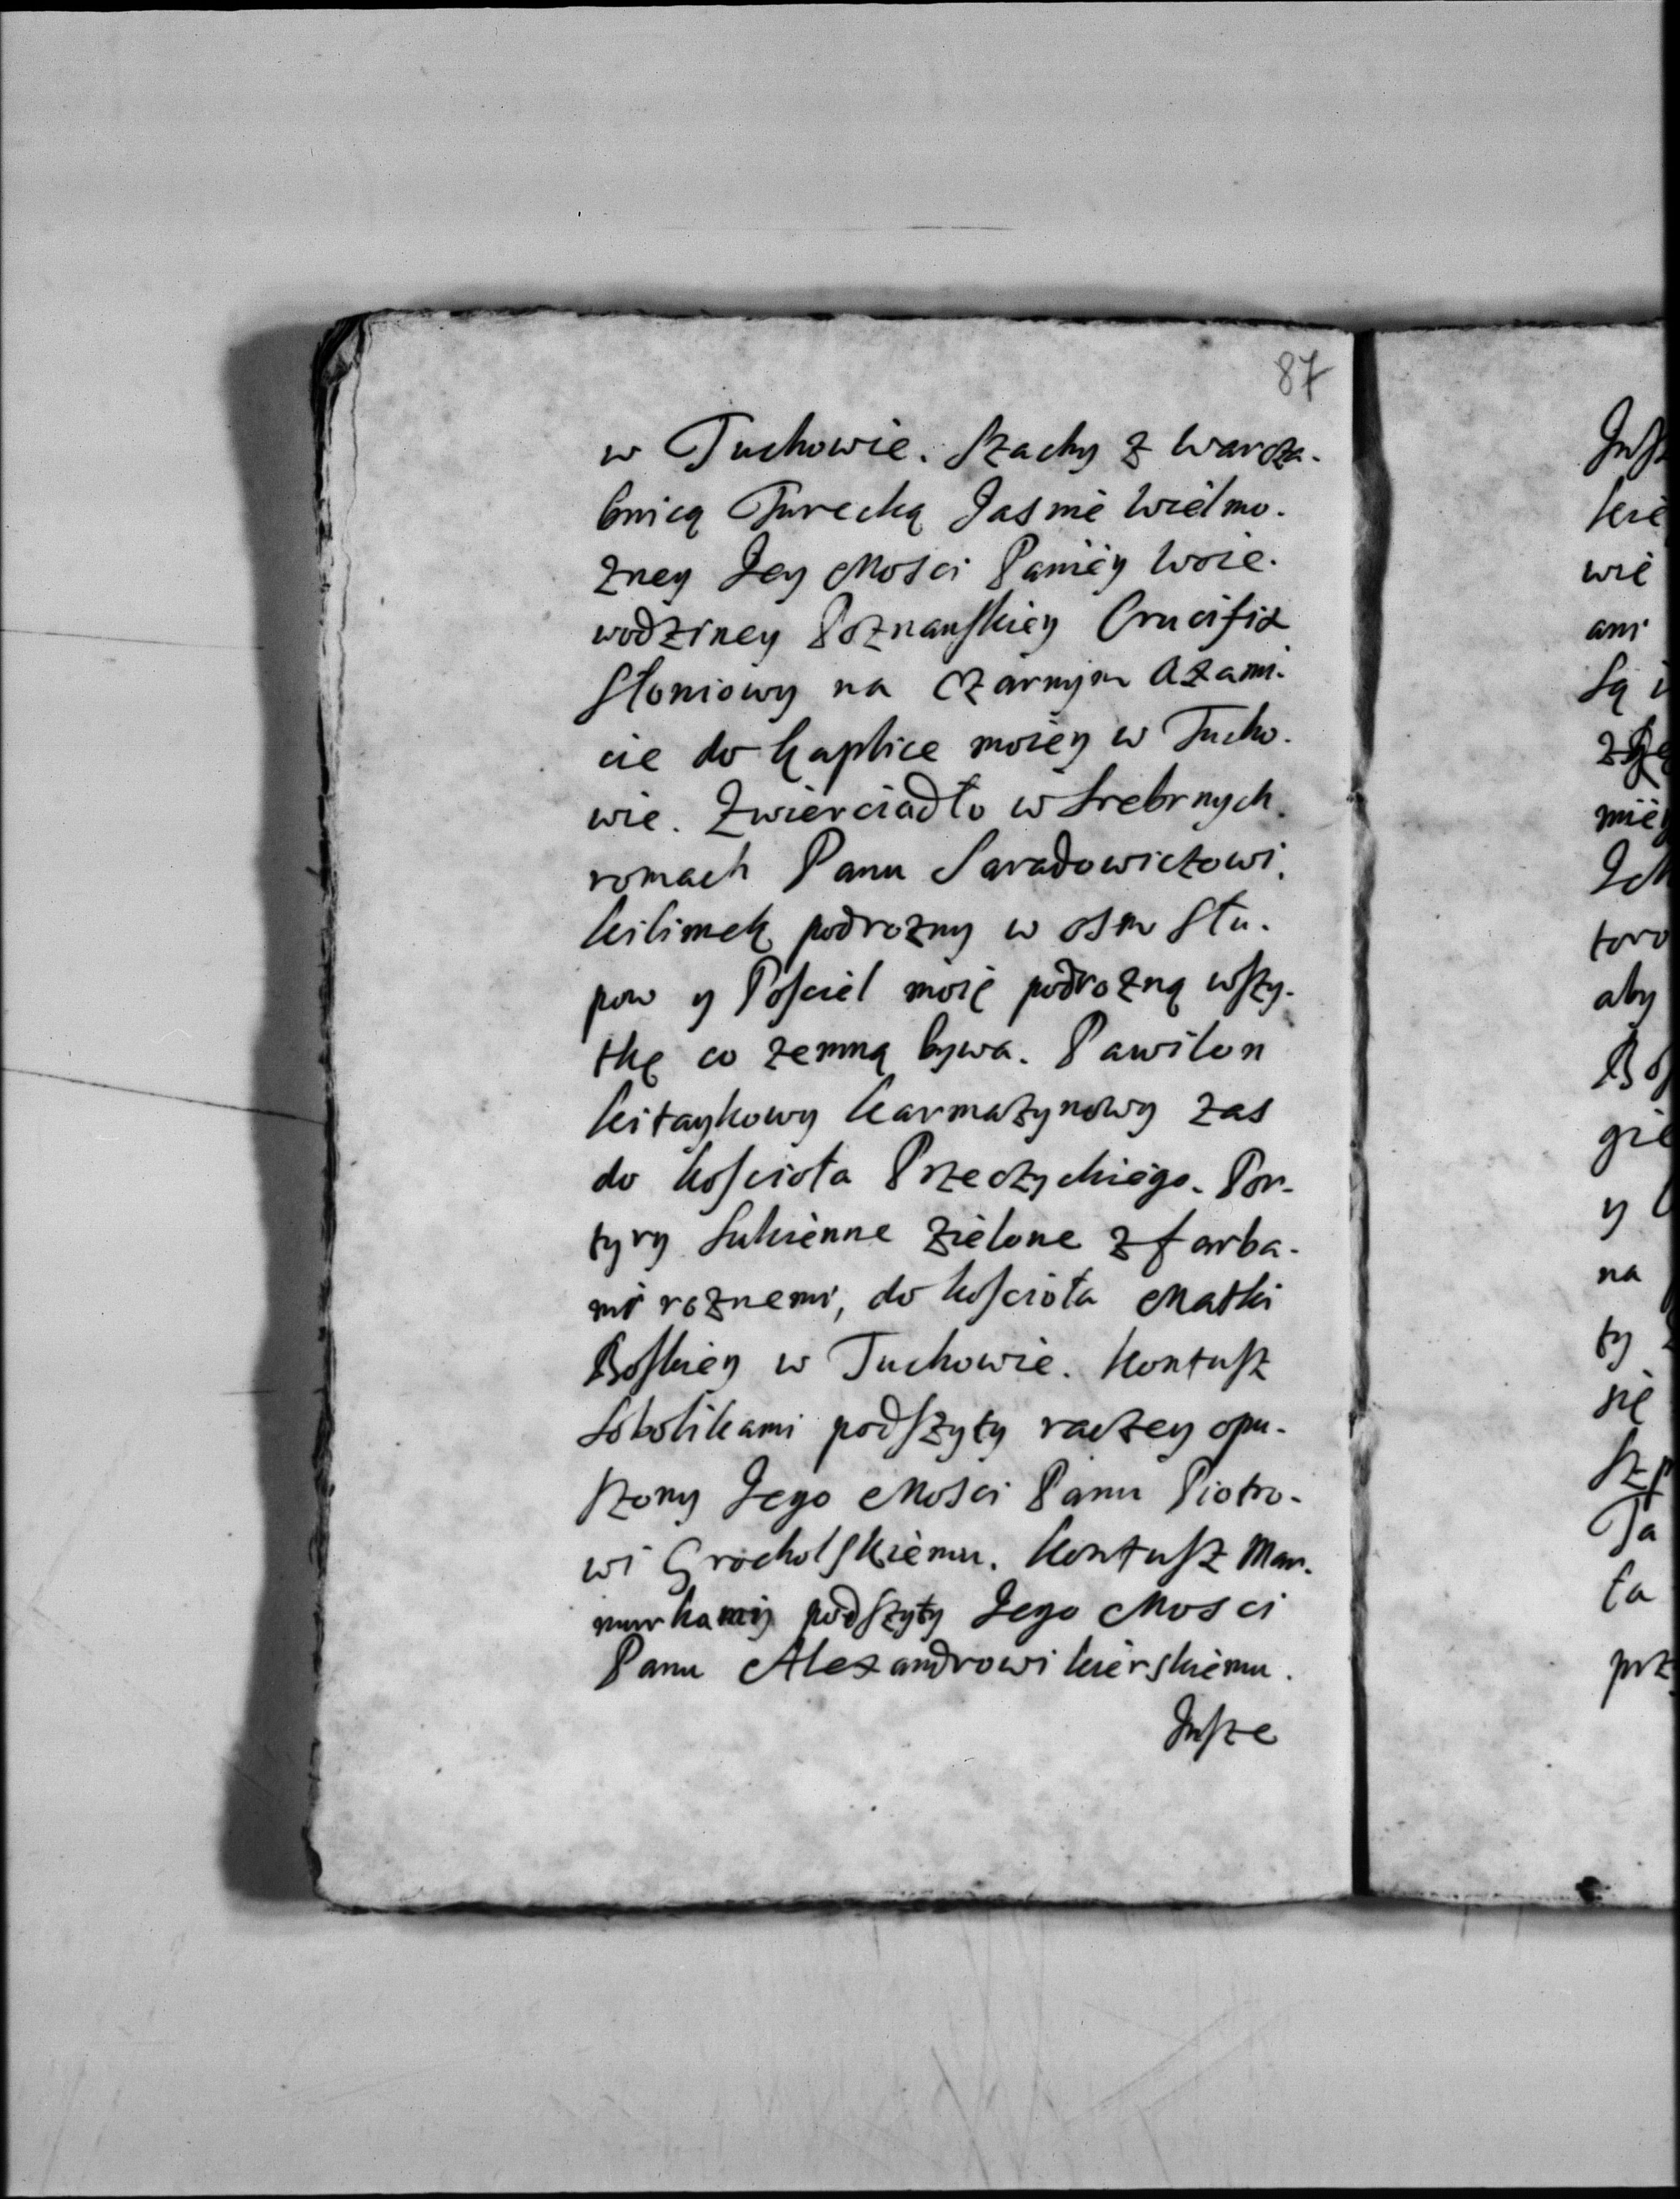 87
w Tuchowie. Szachy z Warcza.
bnicą Turecką Jasnie Wielmo.
zney Jey Mosci Paniey Woie.
wodziney Poznanskiey Crucifix
Słoniowy na Czarnym Axami.
cie do Kaplice moiey w Tucho.
wie. Zwierciadło w Srebrnych.
romach Panu Saradowiczowi.
Kilimek podrozny w osm Słu.
pow y Posciel moię podrozną wszy.
tkę co zemną bywa. Pawilon
kitaykowy karmazynowy zas
do Kosciola Przeczyckiego. Por-
tyry Sukienne Zielone z farba-
mi roznemi, do Kosciola Matki
Boskiey w Tuchowie. Kontusz
Sobolikami podszyty raczey opu-
szony Jego Mosci Panu Piotro-
wi Grocholskiemu. Kontusz Mar.
murkami podszyty Jego Mosci
Panu Alexandrowi Kierskiemu.
Insze
wie
ani
aby
y
na
ty
się
Ta
ta
prz